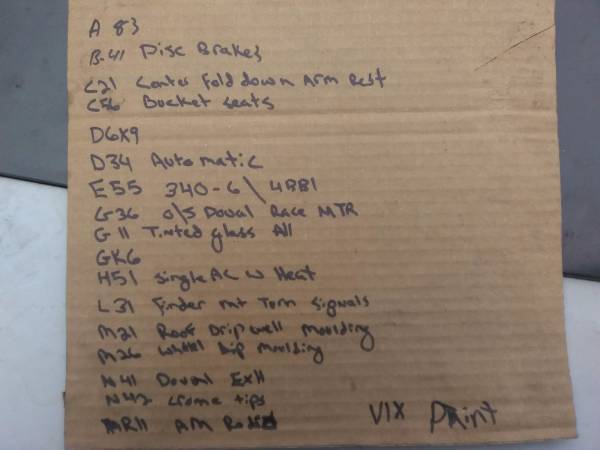 A 83
B-41 Disc Brakes
C21 Center Fold down Arm Rest
C56 Bucket seats
D6X9
D34 Automatic
E55 340-6\4BBl
G36 O/S Doual Race MTR
G11 Tinted glass All
GK6
H51 single AC w Heat
L31 Finder mt Torn Signals
M21 Roof Drip well moulding
M26 wheel lip moulding
N41 Doual Exh
N42 crome tips
R11 AM Radio
V1X Paint